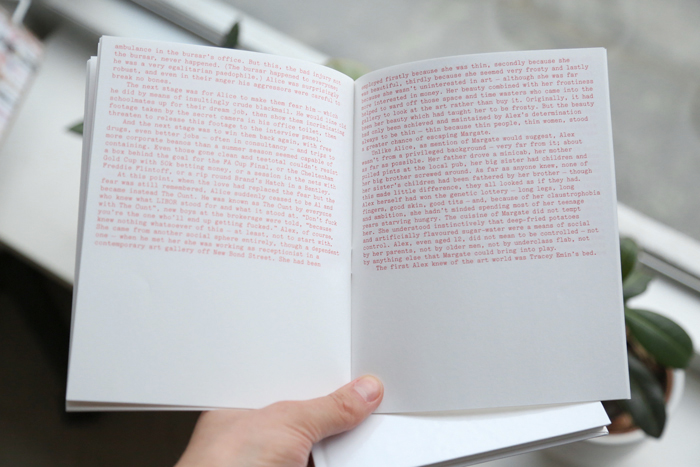 ambulance in the bonser's office. But this, the bad injury of
the bonser, never happened. (The bonser happened to
he was a very egalitarian paedophile.) Alice was surprisingly
robust, and even in their anger his aggressors were careful to
break no bones.
The next stage was for Alice to make them fear him – which
he did by means of insultingly crude blackmail. He would jog his
schoolmates up for their blow job, then show them immaculate
footage taken by the secret camera in his office toilet, then
threaten to release this footage to the internet.
And the next stage was to win them back again, with fear
drugs, even better jobs – often in commodities – and trips to
more corporate beanos than a summer season seemed capable of
containing. Even those gone clean and teetotal can't resist
a box behind the goal for the FA Cup Final, or the Cheltenham
Gold Cup with 50k betting money, or a session in the nets with
Freddie Flintoff, or a rig round Brand's Hatch in a
At this point, when the love had replaced the fear but the
fear was still remembered, Alice suddenly ceased to be Al and
became instead The Cunt. He was known as The Cunt by everyone
who knew what LIBOR stood for and what it stood at. "Don't fuck
with The Cunt", new boys at the brokerages were told, "because
you're the one who'll end up getting fucked." Alex, of course,
knew nothing whatsoever of this – at least, not to start with.
She came from another social sphere entirely, though a dependent
one – when he met her she was working as receptionist in a
contemporary art gallery off New Bond Street. She had been
firstly because she was thin, secondly because she
beautiful, thirdly because she seemed very frosty and lastly
she wasn't uninterested in art – although she was far
more interested in money. Her beauty combined with her frostiness
to ward off those space and time wasters who came into the
gallery to look at the art rather than buy it. Originally, it had
been her beauty which had taught her to be frosty. But the beauty
had only been achieved and maintained by Alex's determination
to be thin – thin because thin people, thin women, stood
a greater chance of escaping Margate.
Unlike Alice, as mention of Margate would suggest, Alex
wasn't from a privileged background – very far from it; about
as far as possible. Her father drove a minicab, her mother
pulled pints at the local pub, her big sister had children and
her big brother screwed around. As far as anyone knew, none of
her sister's children had been fathered by her brother – though
this made little difference, they all looked as if they had.
Alex herself had won the genetic lottery – long legs, long
fingers, good skin, good tits – and, because of her claustrophobia
and ambition, she hadn't minded spending most of her teenage
years starving hungry. The cuisine of Margate did not tempt
her. She understood instinctively that deep-fried potatoes
and artificially flavoured sugar-water were a means of social
control. Alex, even aged 12, did not mean to be controlled – not
by her parents, not by older men, not by underclass fish, not
by anything else that Margate could bring into play.
The first Alex knew of the art world was Tracey Emin's bed.